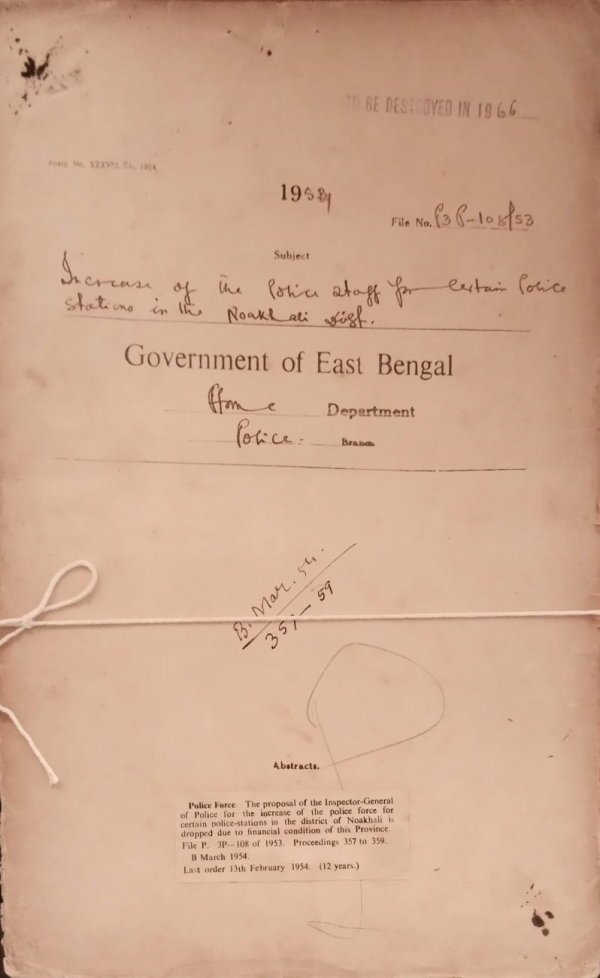 TO BE DESTROYED IN 1966
Form No. XXXVIII
1954
File No. P3P-108/53
Subject
Increase of the Police staff for certain Police
stations in the Noakhali dist.
Government of East Bengal
Home Department
Police. Branch
B. Mar. 54.
357-59
Abstracts.
Police Force The proposal of the Inspector-General
of Police for the increase of the police force for
certain police-stations in the district of Noakhali is
dropped due to financial condition of this Province.
File P. 3P—108 of 1953. Proceedings 357 to 359.
B March 1954.
Last order 13th February 1954. (12 years.)